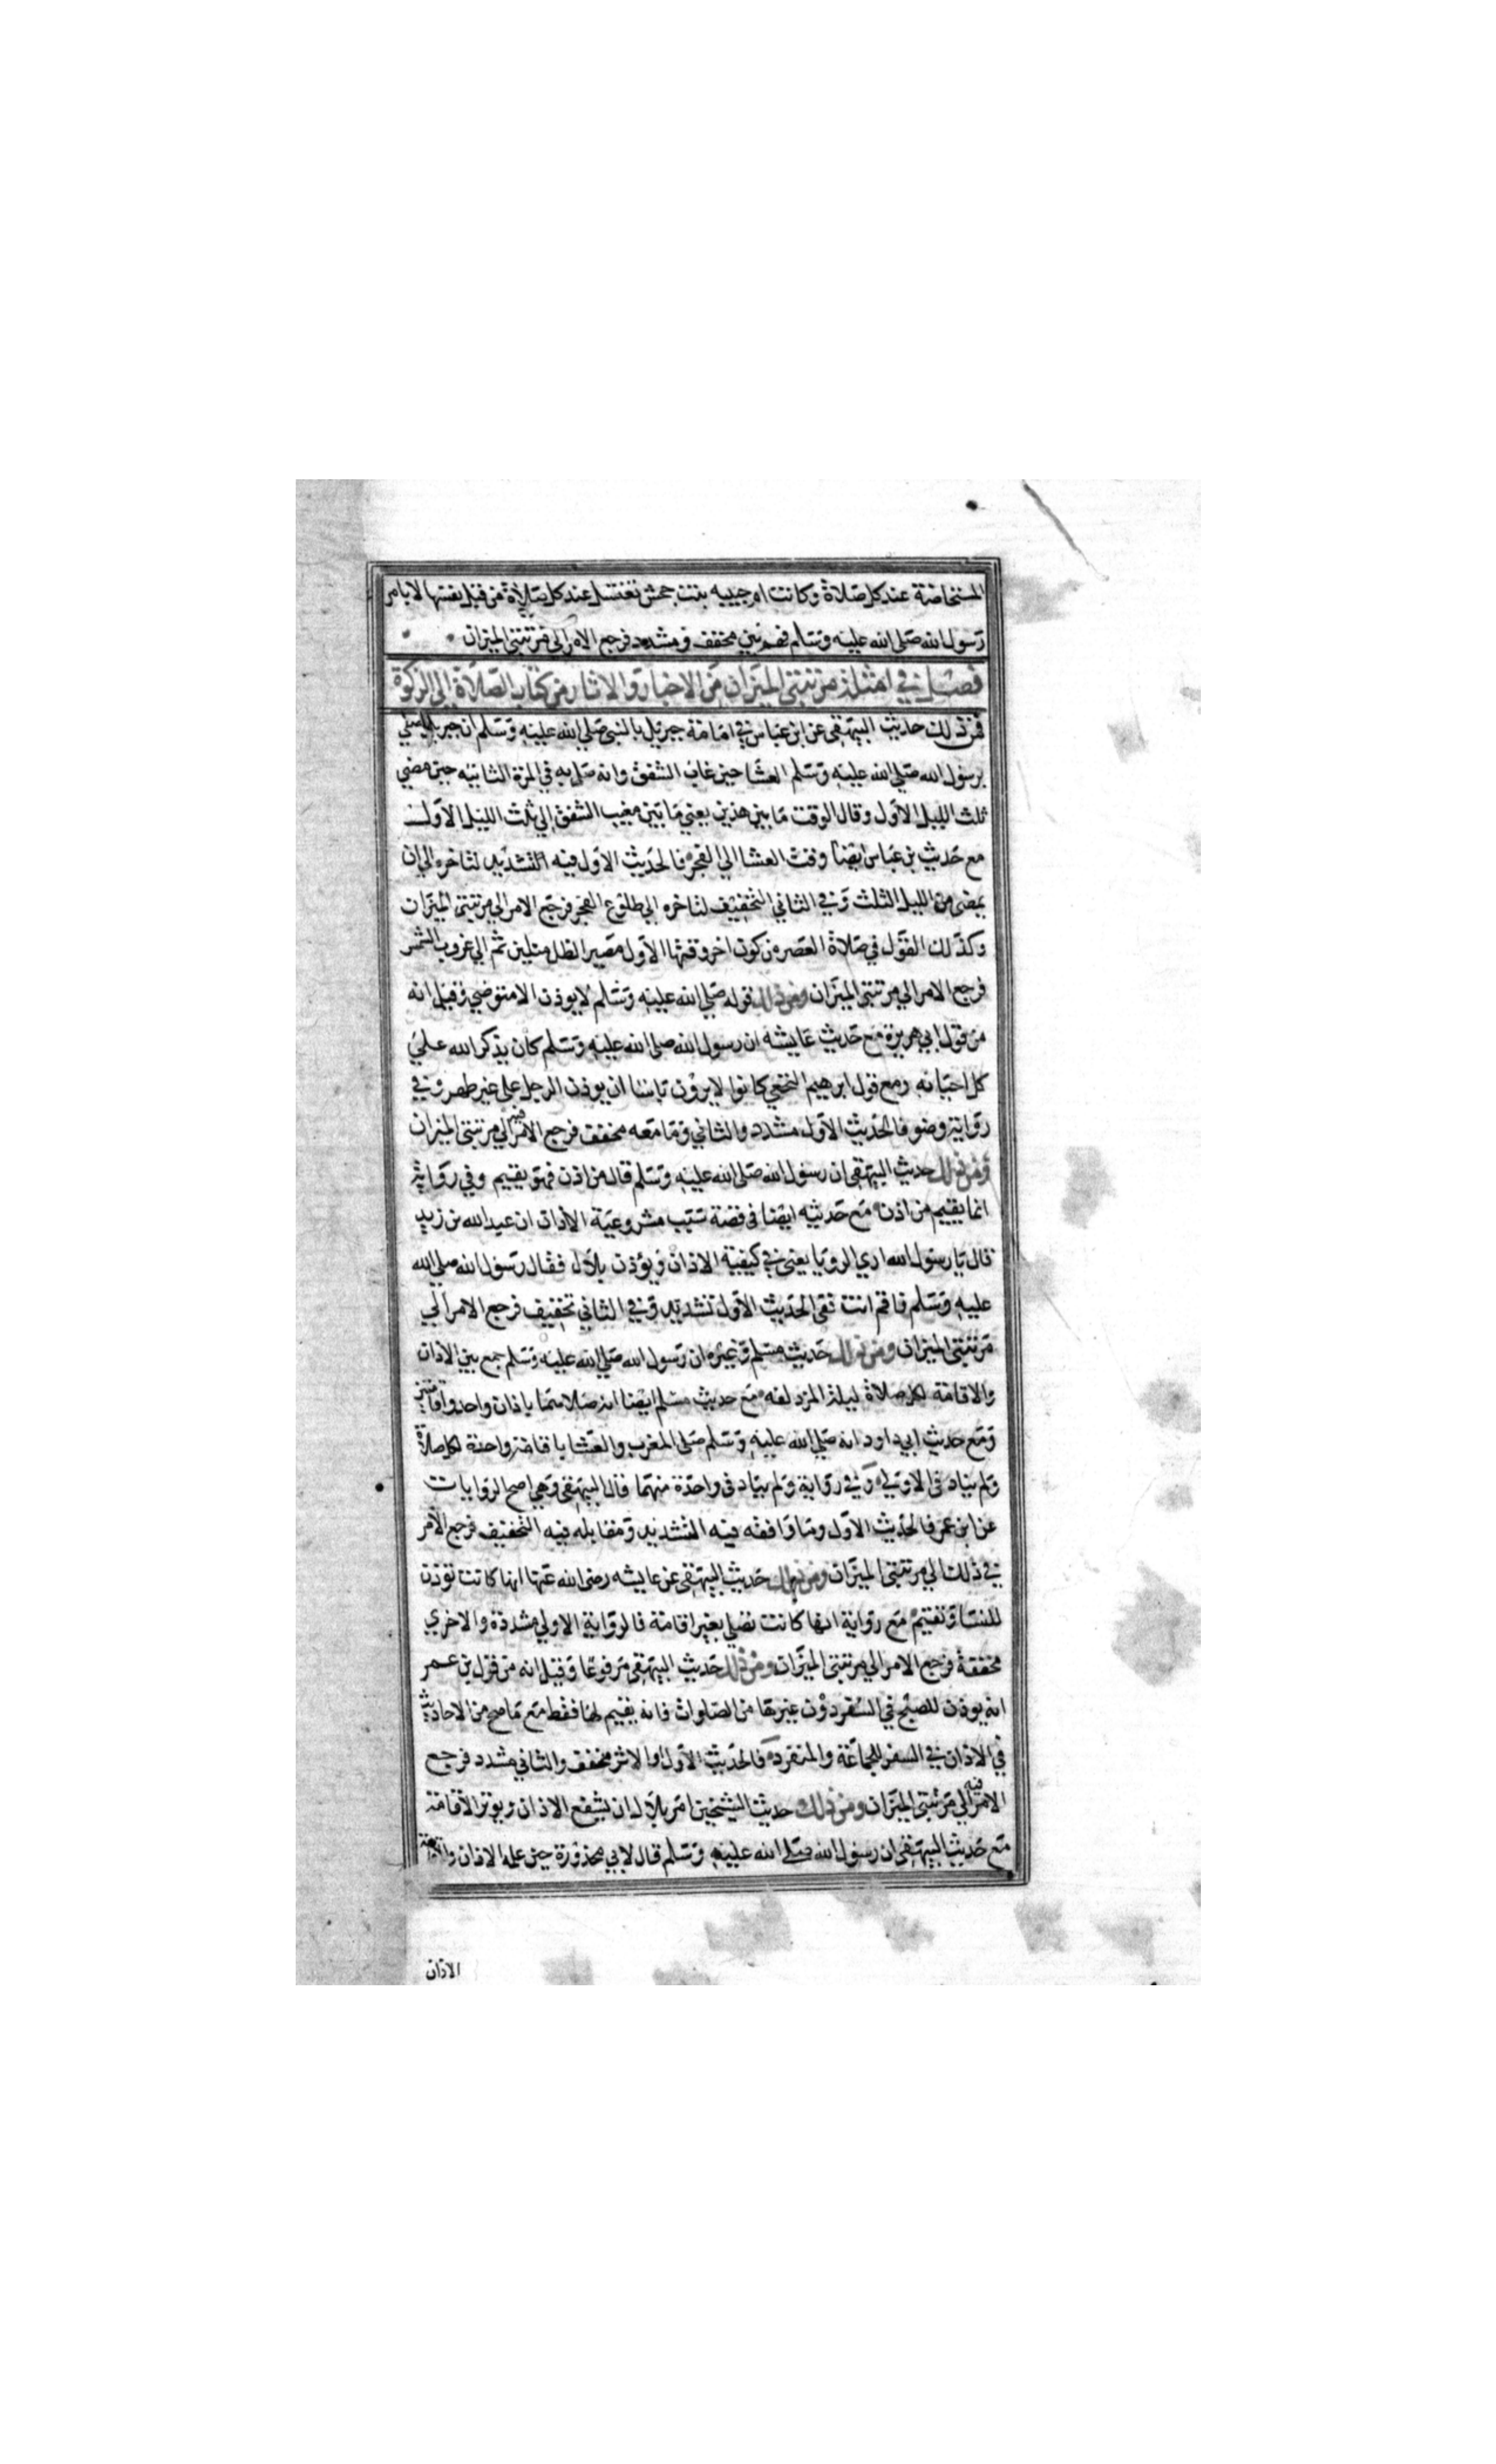 المستحاضة عند كل صلاة وكانت ام حبيبه بنت جحش تغتسل عند كل صلاة من قبل نفسها لا بامر
رسول الله صلى الله عليه وسلم فهم بين مخفف ومشدد فرجع الامر الى مرتبتي الميزان
فصل في امثلة مرتبتي الميزان من الاخبار والاثار من كتاب الصلاة الى الزكوة
فمن ذلك حديث البيهقى عن ابن عباس في امامة جبريل بالنبى صلي الله عليه وسلم ان جبريل صلي
برسول الله صلي الله عليه وسلم العشا حين غاب الشفق وانه صلى به في المرة الثانيه حين مضي
ثلث الليل الاول وقال الوقت ما بين هذين يعني ما بين مغيب الشفق الي ثلث الليل الاول
مع حديث بن عباس ايضا وقت العشا الي الفجر فالحديث الاول فيه التشديد لتاخره الي ان
يمضى من الليل الثلث وفي الثاني التخفيف لتاخره الي طلوع الفجر فرجع الامر الي مرتبتي الميزان
وكذلك القول في صلاة العصر من كون اخر وقتها الاول مصير الظل مثلين ثم الي غروب الشمس
فرجع الامر الي مرتبتى الميزان ومن ذلك قوله صلي الله عليه وسلم لا يوذن الا متوضي وقيل انه
من قول ابي هريرة مع حديث عايشه ان رسول الله صلى الله عليه وسلم كان يذكر الله علي
كل احيانه ومع قول ابرهيم النخعي كانوا لا يرون باسا ان يوذن الرجل على غير طهر وفي
رواية وضو فالحديث الاول مشدد والثاني وما معه مخفف فرجع الامر فيه الي مرتبتى الميزان
ومن ذلك حديث البيهقى ان رسول الله صلى الله عليه وسلم قال من اذن فهو يقيم وفي رواية
انما يقيم من اذن مع حديثه ايضا فى قصة سبب مشروعية الاذان ان عبد الله بن زيد
قال يا رسول الله اري الرويا يعنى في كيفية الاذان ويؤذن بلال فقال رسول الله صلي الله
عليه وسلم فاقم انت ففى الحديث الاول تشديد وفي الثاني تخفيف فرجع الامر الي
مرتبتى الميزان ومن ذلك حديث مسلم وغيره ان رسول الله صلي الله عليه وسلم جمع بين الاذان
والاقامة لكل صلاة ليلة المزدلفه مع حديث مسلم ايضا انه صلاهما باذان واحد واقامتين
ومع حديث ابي داود انه صلي الله عليه وسلم صلى المغرب والعشا باقامة واحدة لكل صلاة
ولم يناد فى الاولي وفي رواية ولم يناد فى واحدة منهما قال البيهقى وهي اصح الروايات
عن ابن عمر فالحديث الاول وما وافقه فيه التشديد ومقابله فيه التخفيف فرجع الامر
في ذلك الي مرتبتى الميزان ومن ذلك حديث البيهقى عن عايشه رضى الله عنها انها كانت توذن
للنسا وتقيم مع رواية انها كانت تصلي بغير اقامة فالرواية الاولي مشددة والاخري
مخففة فرجع الامر الي مرتبتى الميزان ومن ذلك حديث البيهقى مرفوعا وقيل انه من قول بن عمر
انه يوذن للصبح في السفر دون غيرها من الصلوات فانه يقيم لها فقط مع ما صح من الاحاديث
في الاذان في السفر للجماعة والمنفرد فالحديث الاول او الاثر مخفف والثاني مشدد فرجع
الامر فيه الي مرتبتى الميزان ومن ذلك حديث الشيخين امر بلال ان يشفع الاذان ويوتر الاقامة
مع حديث البيهقى ان رسول الله صلى الله عليه وسلم قال لابي محذورة حين علمه الاذان والاقامة
الاذان